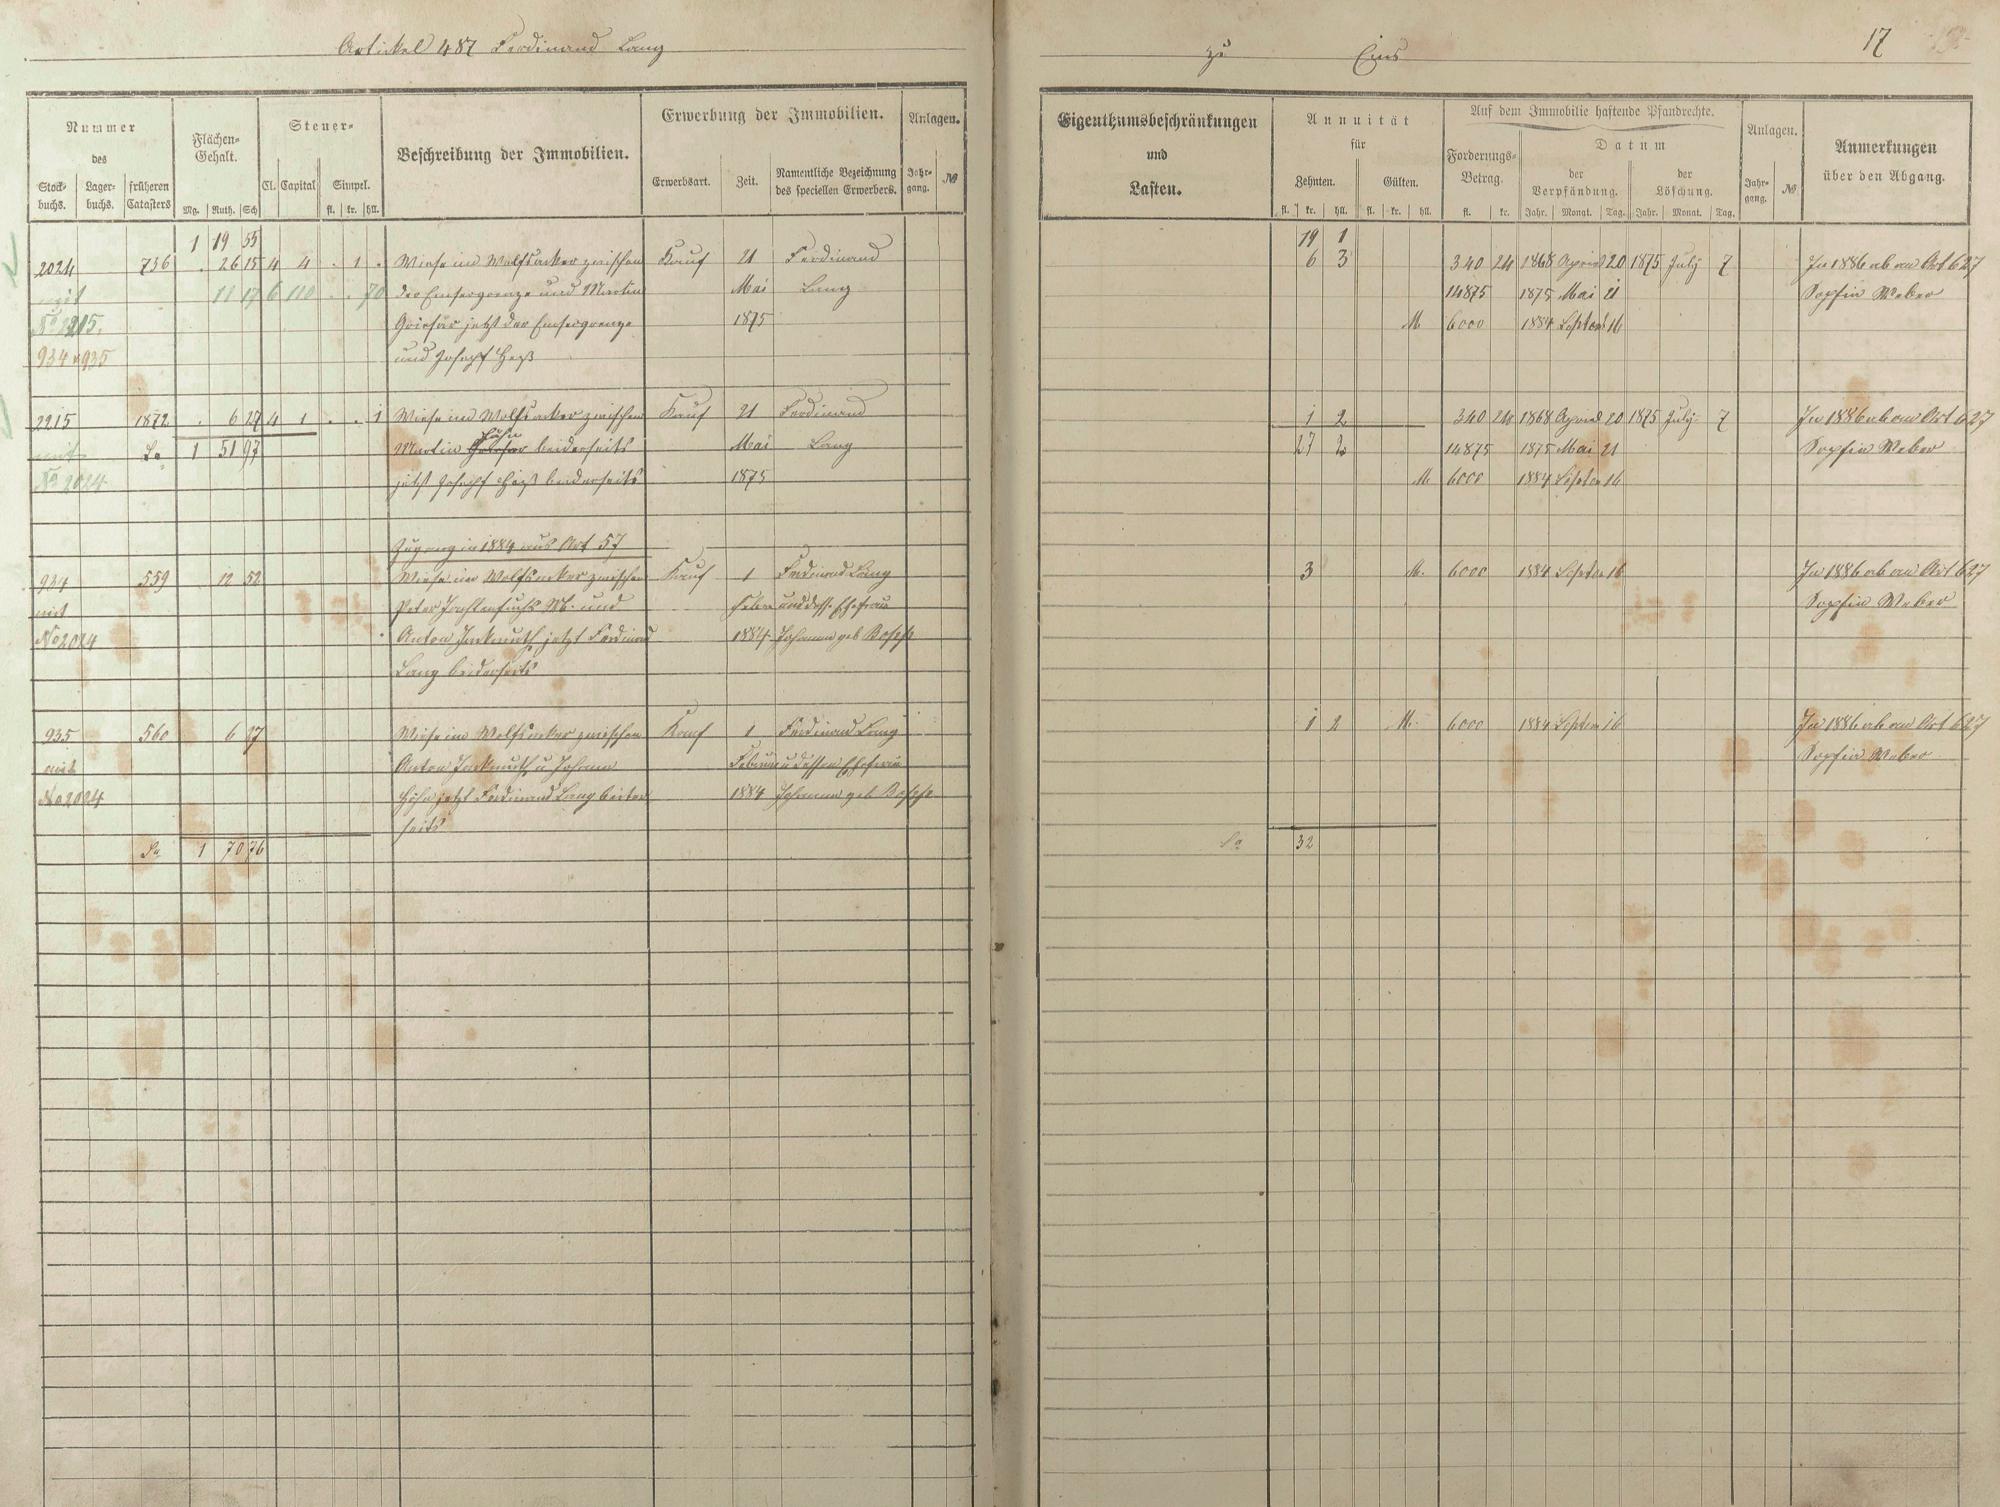 Artikel 487 Ferdinand Lang
zu Ems 17
Nummer
des
Stock-buchs. Lager-buchs. früheren Catasters
Flächen-Gehalt.
Mg. Ruth. Sch
Steuer-
Cl. Capital Simpel.
fl. kr. hll.
Beschreibung der Immobilien.
Erwerbung der Immobilien.
Erwerbsart. Zeit. Namentliche Bezeichnung des speciellen Erwerbers.
Anlagen.
Jahr-gang. №
Eigenthumsbeschränkungen
und
Lasten.
Annuität
für
Zehnten. Gülten.
fl. kr. hll. fl. kr. hll.
Auf dem Immobilie haftende Pfandrechte.
Forderungs-Betrag. Datum
der Verpfändung. der Löschung.
fl. kr. Jahr. Monat. Tag. Jahr. Monat. Tag.
Anlagen.
Jahr-gang. №
Anmerkungen
über den Abgang.
1 19 55 19 1
2024 736 . 26 15 4 4 . 1 . Wiese im Wolfsacker zwischen Kauf 21 Ferdinand 6 3 340 24 1868 April 20 1875 July 7 In 1886 ab an Art 627
mit 11 17 6 110 . . 70 der Emsergrenze und Martin Mai Lang 14875 1875 Mai 21 Sophia Weber
No 2215. jetzt der Emsergrenze 1875 M 6000 1884 Septem 16
934 & 935 und Joseph Heß
2215 1872 . 6 27 4 1 . . 1 Wiese im Wolfsacker zwischen Kauf 21 Ferdinand 1 2 340 24 1868 April 20 1875 July 7 In 1886 ab an Art 627
mit Sa 1 51 97 Martin Höhn beiderseits Mai Lang 27 2 14875 1875 Mai 21 Sophia Weber
No 2024 jetzt Joseph Heß beiderseits 1875 M. 6000 1884 Septem 16
Zugang in 1884 aus Art 57
934 559 12 52 Wiese im Wolfsacker zwischen Kauf 1 Ferdinand Lang 3 M. 6000 1884 Septem 16 In 1886 ab an Art 627
mit Peter und Febru und dess. Ehefrau Sophia Weber
No 2024 Anton jetzt Ferdinand 1884 Johanna geb
Lang beiderseits
935 560 6 27 Wiese im Wolfsacker zwischen Kauf 1 Ferdinand Lang 1 2 M. 6000 1884 Septem 16 In 1886 ab an Art 627
mit Anton u Johann Februar u dessen Ehefrau Sophia Weber
No 2024 Höhn jetzt Ferdinand Lang beider 1884 Johanna geb
seits
Sa 1 70 76 Sa 32